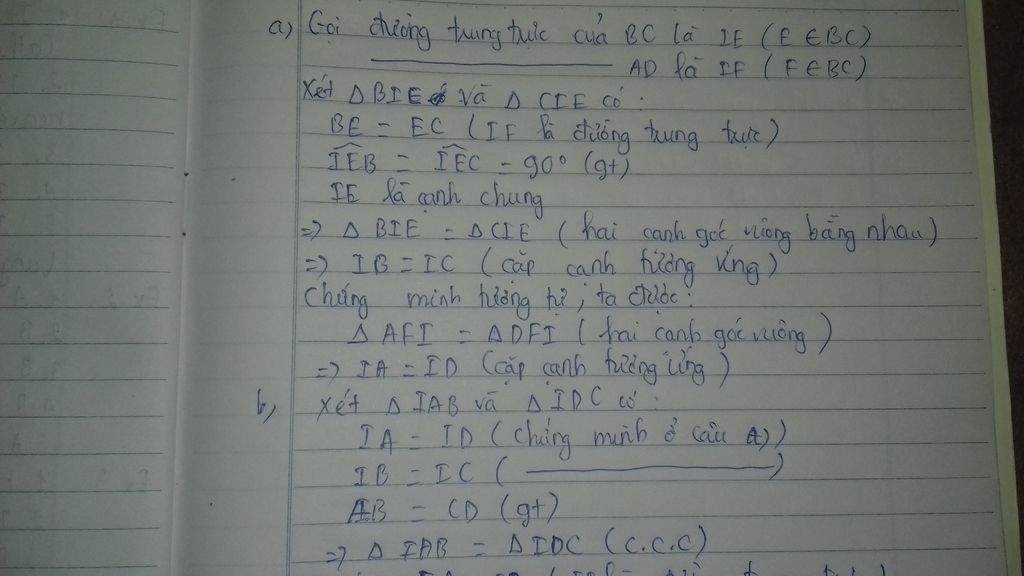 a) Gọi đường trung trực của BC là IE (E ∈ BC)
AD là IF (F ∈ BC)
Xét Δ BIE và Δ CIE có:
BE = EC (IF là đường trung trực)
IEB = IEC = 90° (gt)
IE là cạnh chung
=> Δ BIE = Δ CIE (hai cạnh góc vuông bằng nhau)
=> IB = IC (cặp cạnh tương ứng)
Chứng minh tương tự, ta được:
Δ AFI = Δ DFI (hai cạnh góc vuông)
=> IA = ID (cặp cạnh tương ứng)
b, Xét Δ IAB và Δ IDC có:
IA = ID (chứng minh ở câu a))
IB = IC ( )
AB = CD (gt)
=> Δ IAB = Δ IDC (C.C.C)